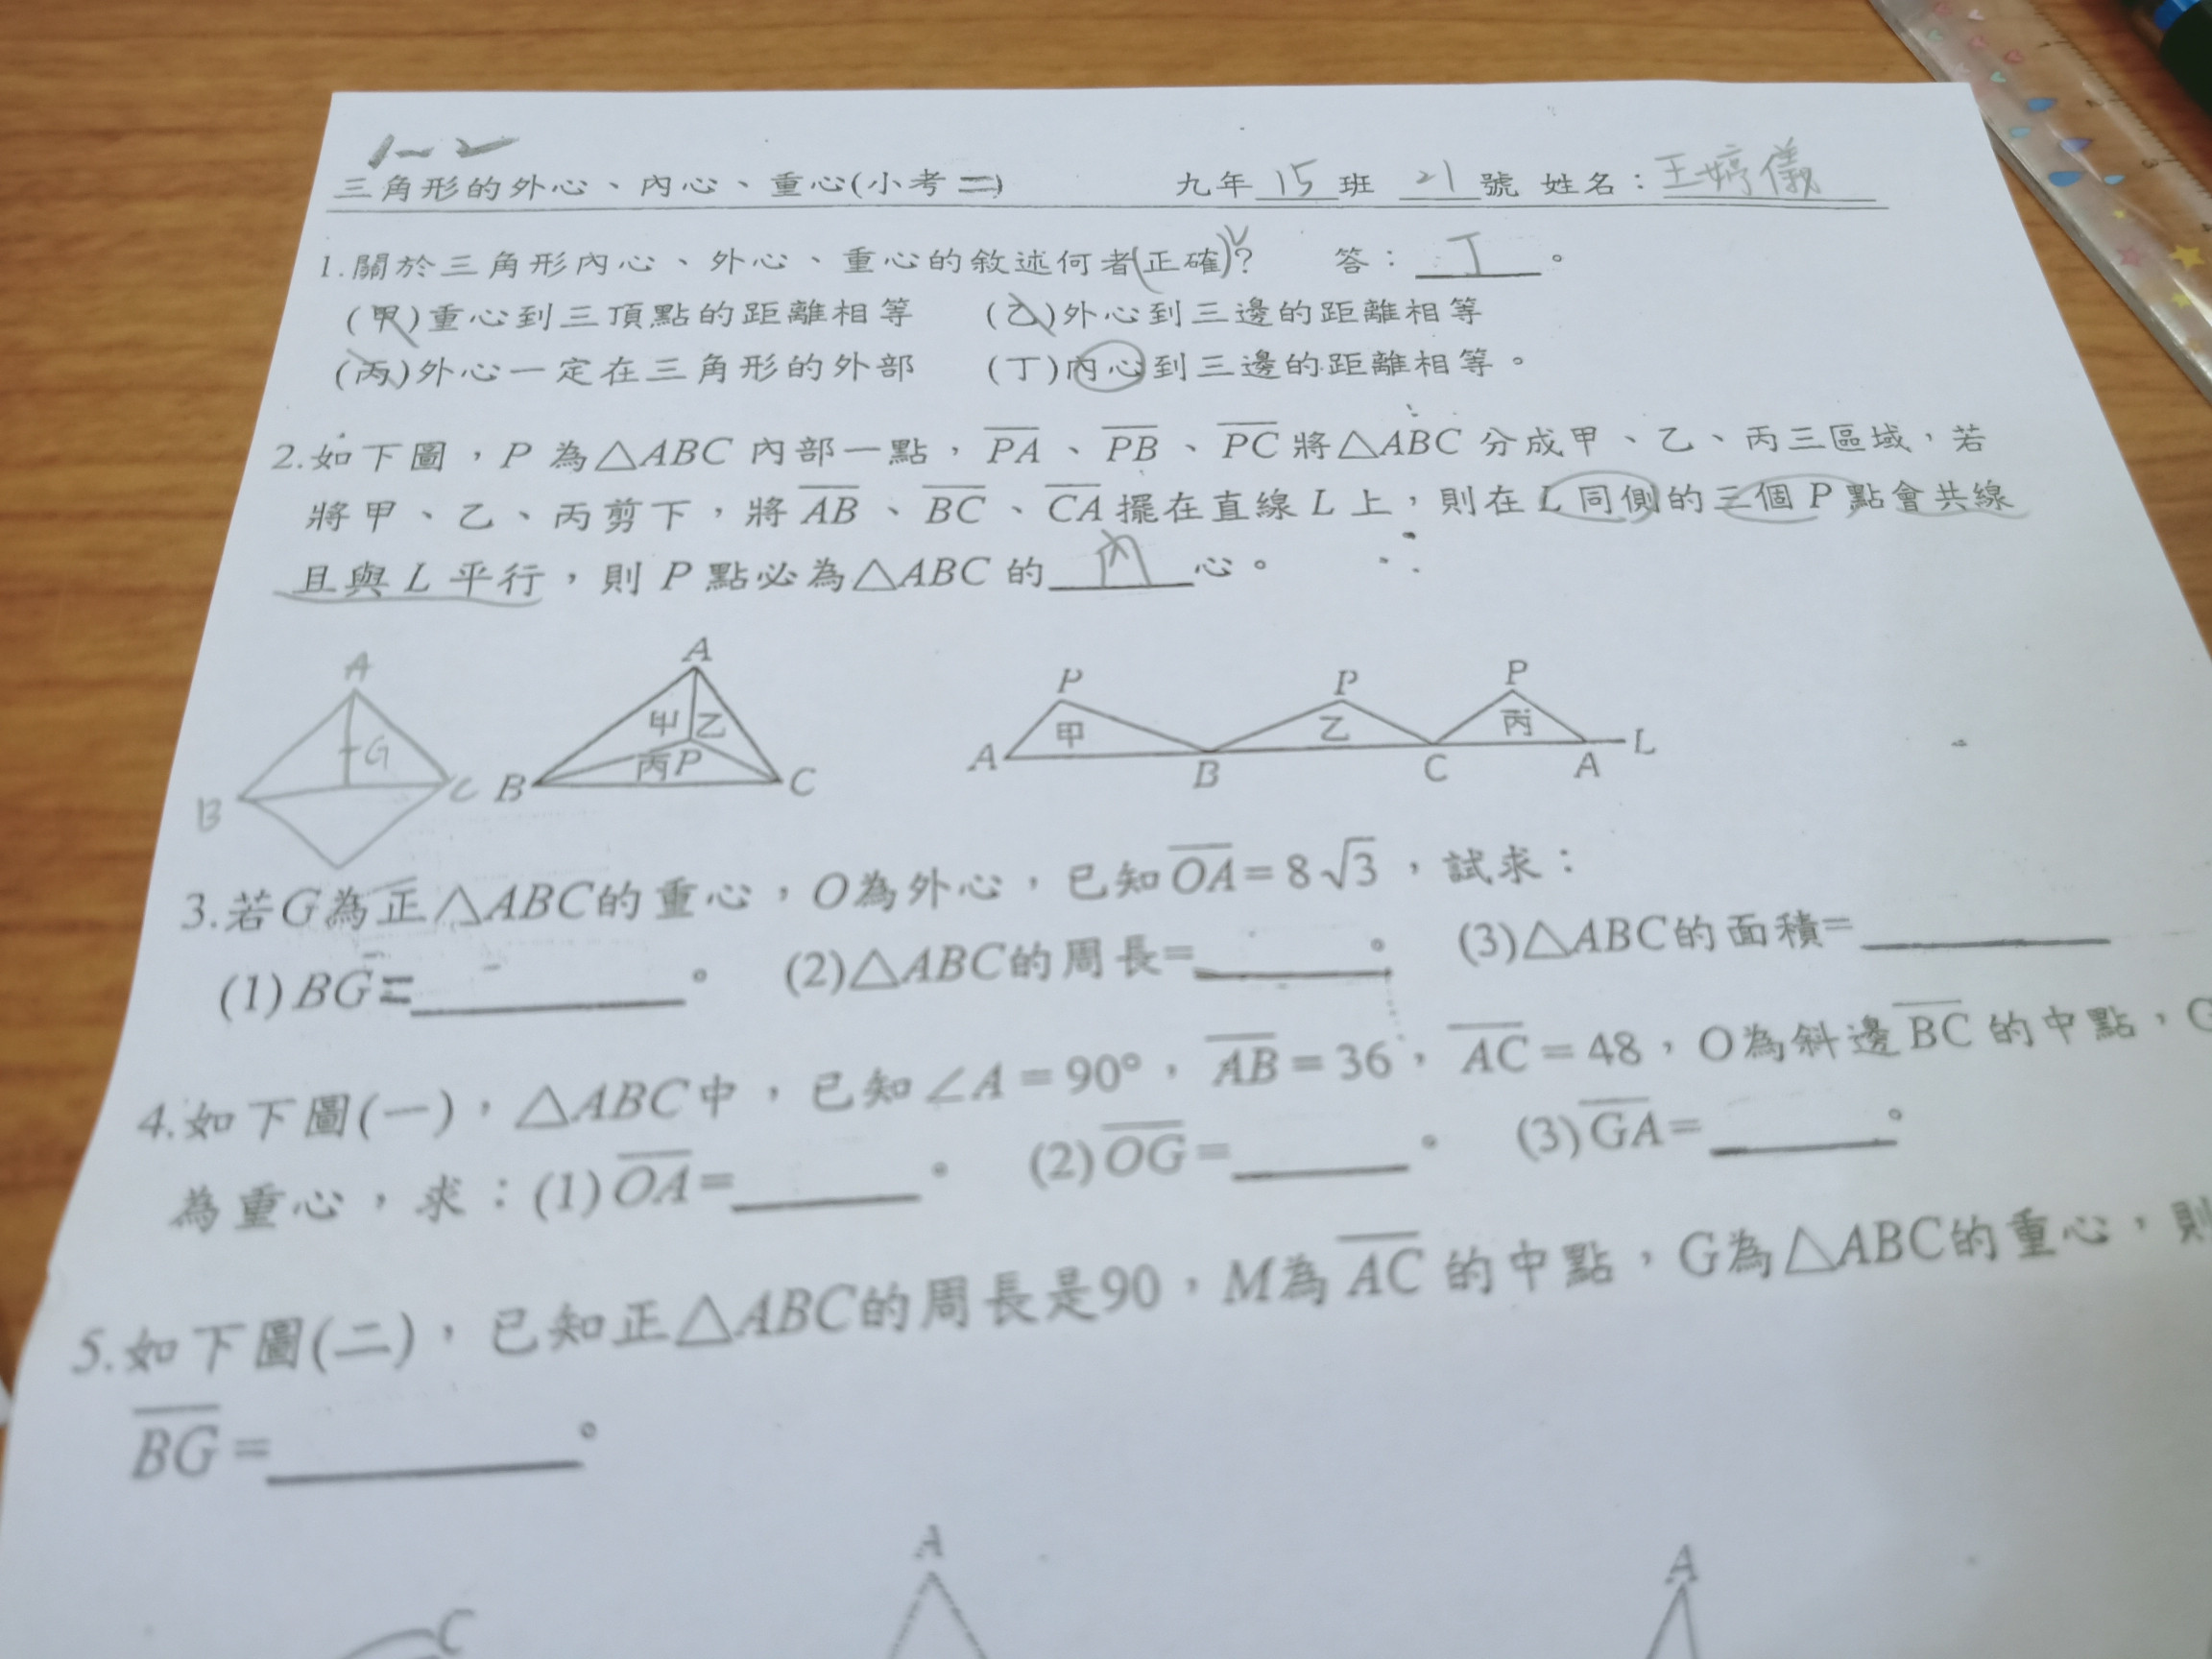 1-2
三角形的外心、內心、重心(小考二) 九年 15 班 21 號 姓名：王婷儀
1.關於三角形內心、外心、重心的敘述何者(正確)? 答：丁。
(甲)重心到三頂點的距離相等 (乙)外心到三邊的距離相等
(丙)外心一定在三角形的外部 (丁)內心到三邊的距離相等。
2.如下圖，P 為△ABC 內部一點，PA、PB、PC 將△ABC 分成甲、乙、丙三區域，若
將甲、乙、丙剪下，將 AB、BC、CA 擺在直線 L 上，則在 L 同側的三個 P 點會共線
且與 L 平行，則 P 點必為△ABC 的 內 心。
A
G
B
C
A
甲
乙
丙
P
B
C
P
P
P
甲
乙
丙
A
B
C
A
L
3.若G為正△ABC的重心，O為外心，已知OA=8√3，試求：
(1)BG=______。 (2)△ABC的周長=______。 (3)△ABC的面積=______
4.如下圖(一)，△ABC中，已知∠A=90°，AB=36，AC=48，O為斜邊BC的中點，G
為重心，求：(1)OA=______。 (2)OG=______。 (3)GA=______。
5.如下圖(二)，已知正△ABC的周長是90，M為AC的中點，G為△ABC的重心，則
BG=______。
A
A
C